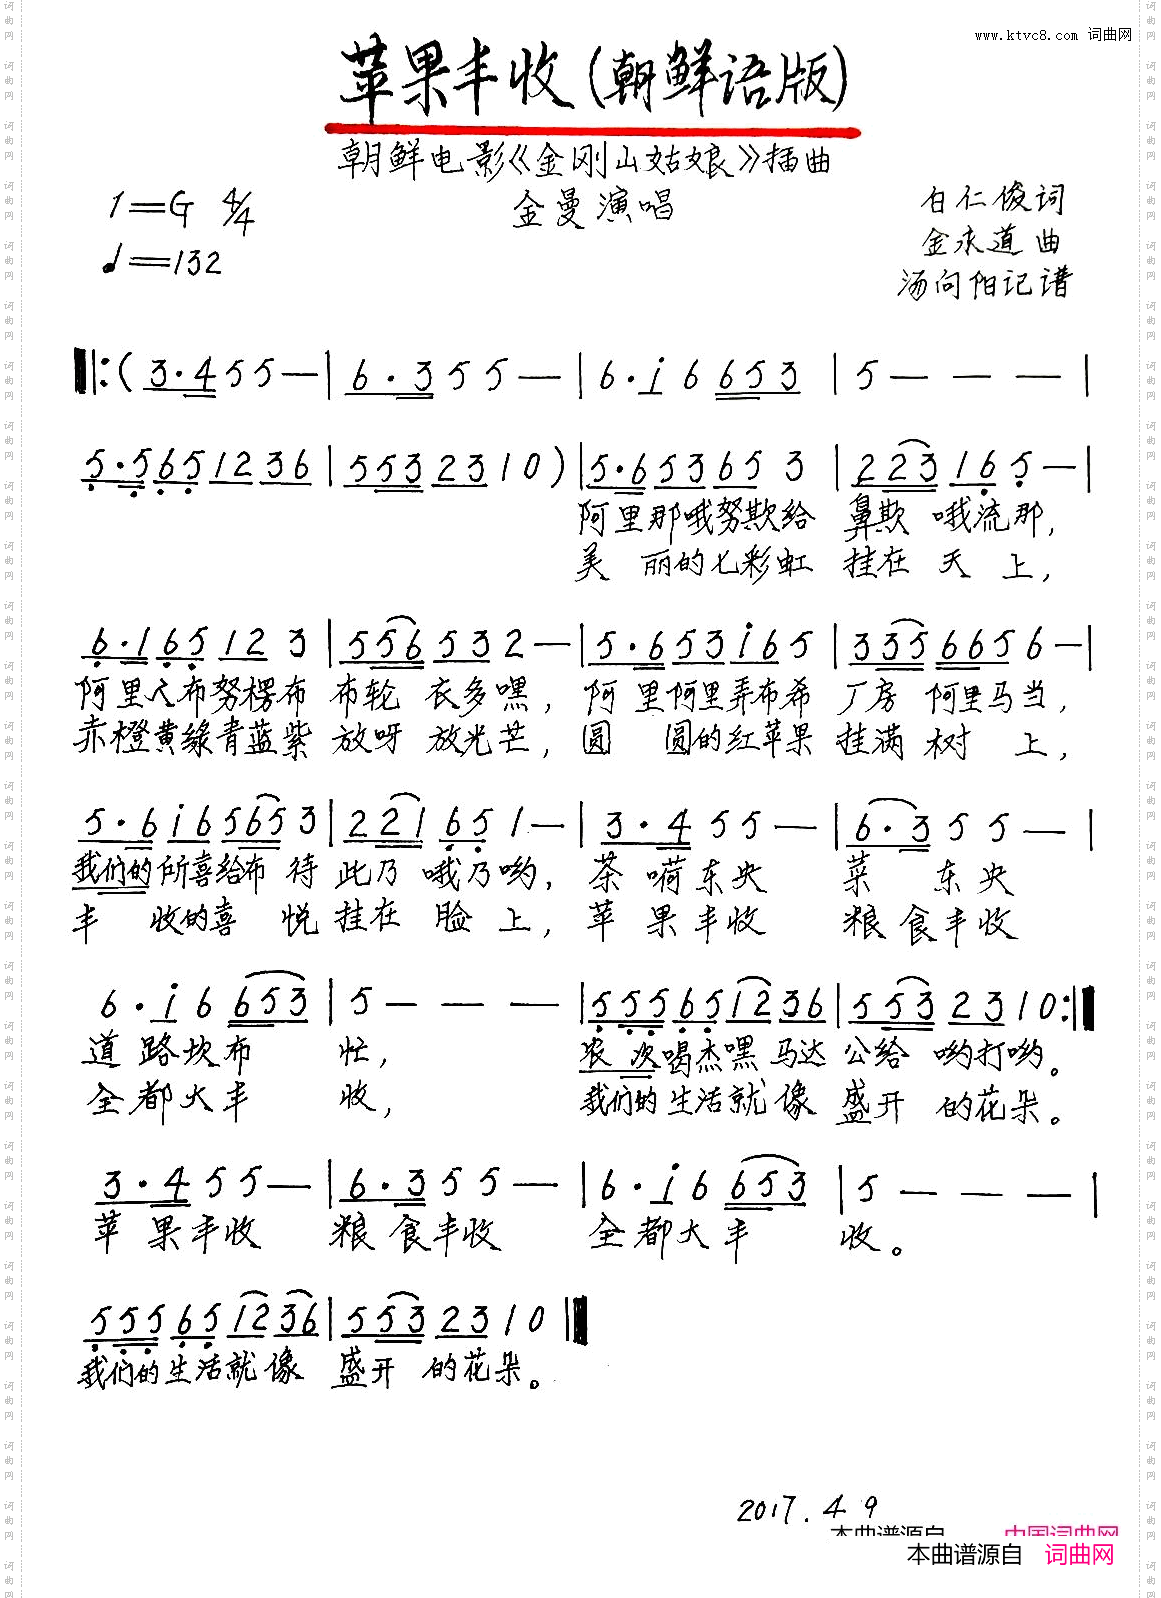 www.ktvc8.com 词曲网
苹果丰收(朝鲜语版)
朝鲜电影《金刚山姑娘》插曲
1=G 4/4 金曼演唱 白仁俊词
♩=132 金永道曲
汤向阳记谱
‖:(3·4 5 5 — | 6·3 5 5 — | 6·i 6 6 5 3 | 5 — — — |
5·5 6 5 1 2 3 6 | 5 5 3 2 3 1 0) | 5·6 5 3 6 5 3 | 2 2 3 1 6 5 — |
阿里那哦努欺给 鼻欺 哦流那,
美 丽的七彩虹 挂在 天 上,
6·1 6 5 1 2 3 | 5 5 6 5 3 2 — | 5·6 5 3 i 6 5 | 3 3 5 6 6 5 6 — |
阿里尺布努楞布 布轮 衣多嘿, 阿 里阿里弄布希 厂房 阿里马当,
赤橙黄绿青蓝紫 放呀 放光芒, 圆 圆的红苹果 挂满 树 上,
5·6 i 6 5 6 5 3 | 2 2 1 6 5 1 — | 3·4 5 5 — | 6·3 5 5 — |
我们的所喜给布 待 此乃 哦乃哟, 茶 嗬东央 菜 东央
丰 收的喜 悦 挂在 脸 上, 苹 果丰收 粮 食丰收
6·i 6 6 5 3 | 5 — — — | 5 5 5 6 5 1 2 3 6 | 5 5 3 2 3 1 0 :‖
道 路坎布 忙, 农 次喝杰嘿 马达 公给 哟打哟。
全都大丰 收, 我们的生活就 像 盛开 的花朵。
3·4 5 5 — | 6·3 5 5 — | 6·i 6 6 5 3 | 5 — — — |
苹 果丰收 粮 食丰收 全都大丰 收。
5 5 5 6 5 1 2 3 6 | 5 5 3 2 3 1 0 ‖
我们的生活就 像 盛开 的花朵。
2017.4.9
本曲谱源自 中国词曲网
本曲谱源自 词曲网